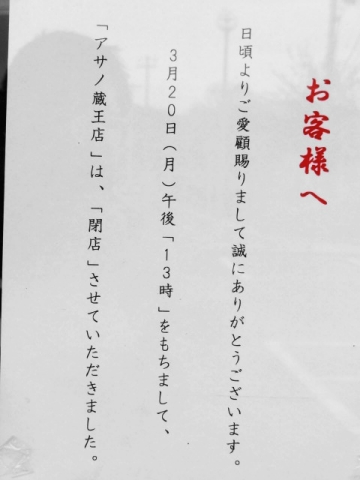 お客様へ
日頃よりご愛顧賜りまして誠にありがとうございます。
3月20日(月)午後「13時」をもちまして、
「アサノ蔵王店」は、「閉店」させていただきました。